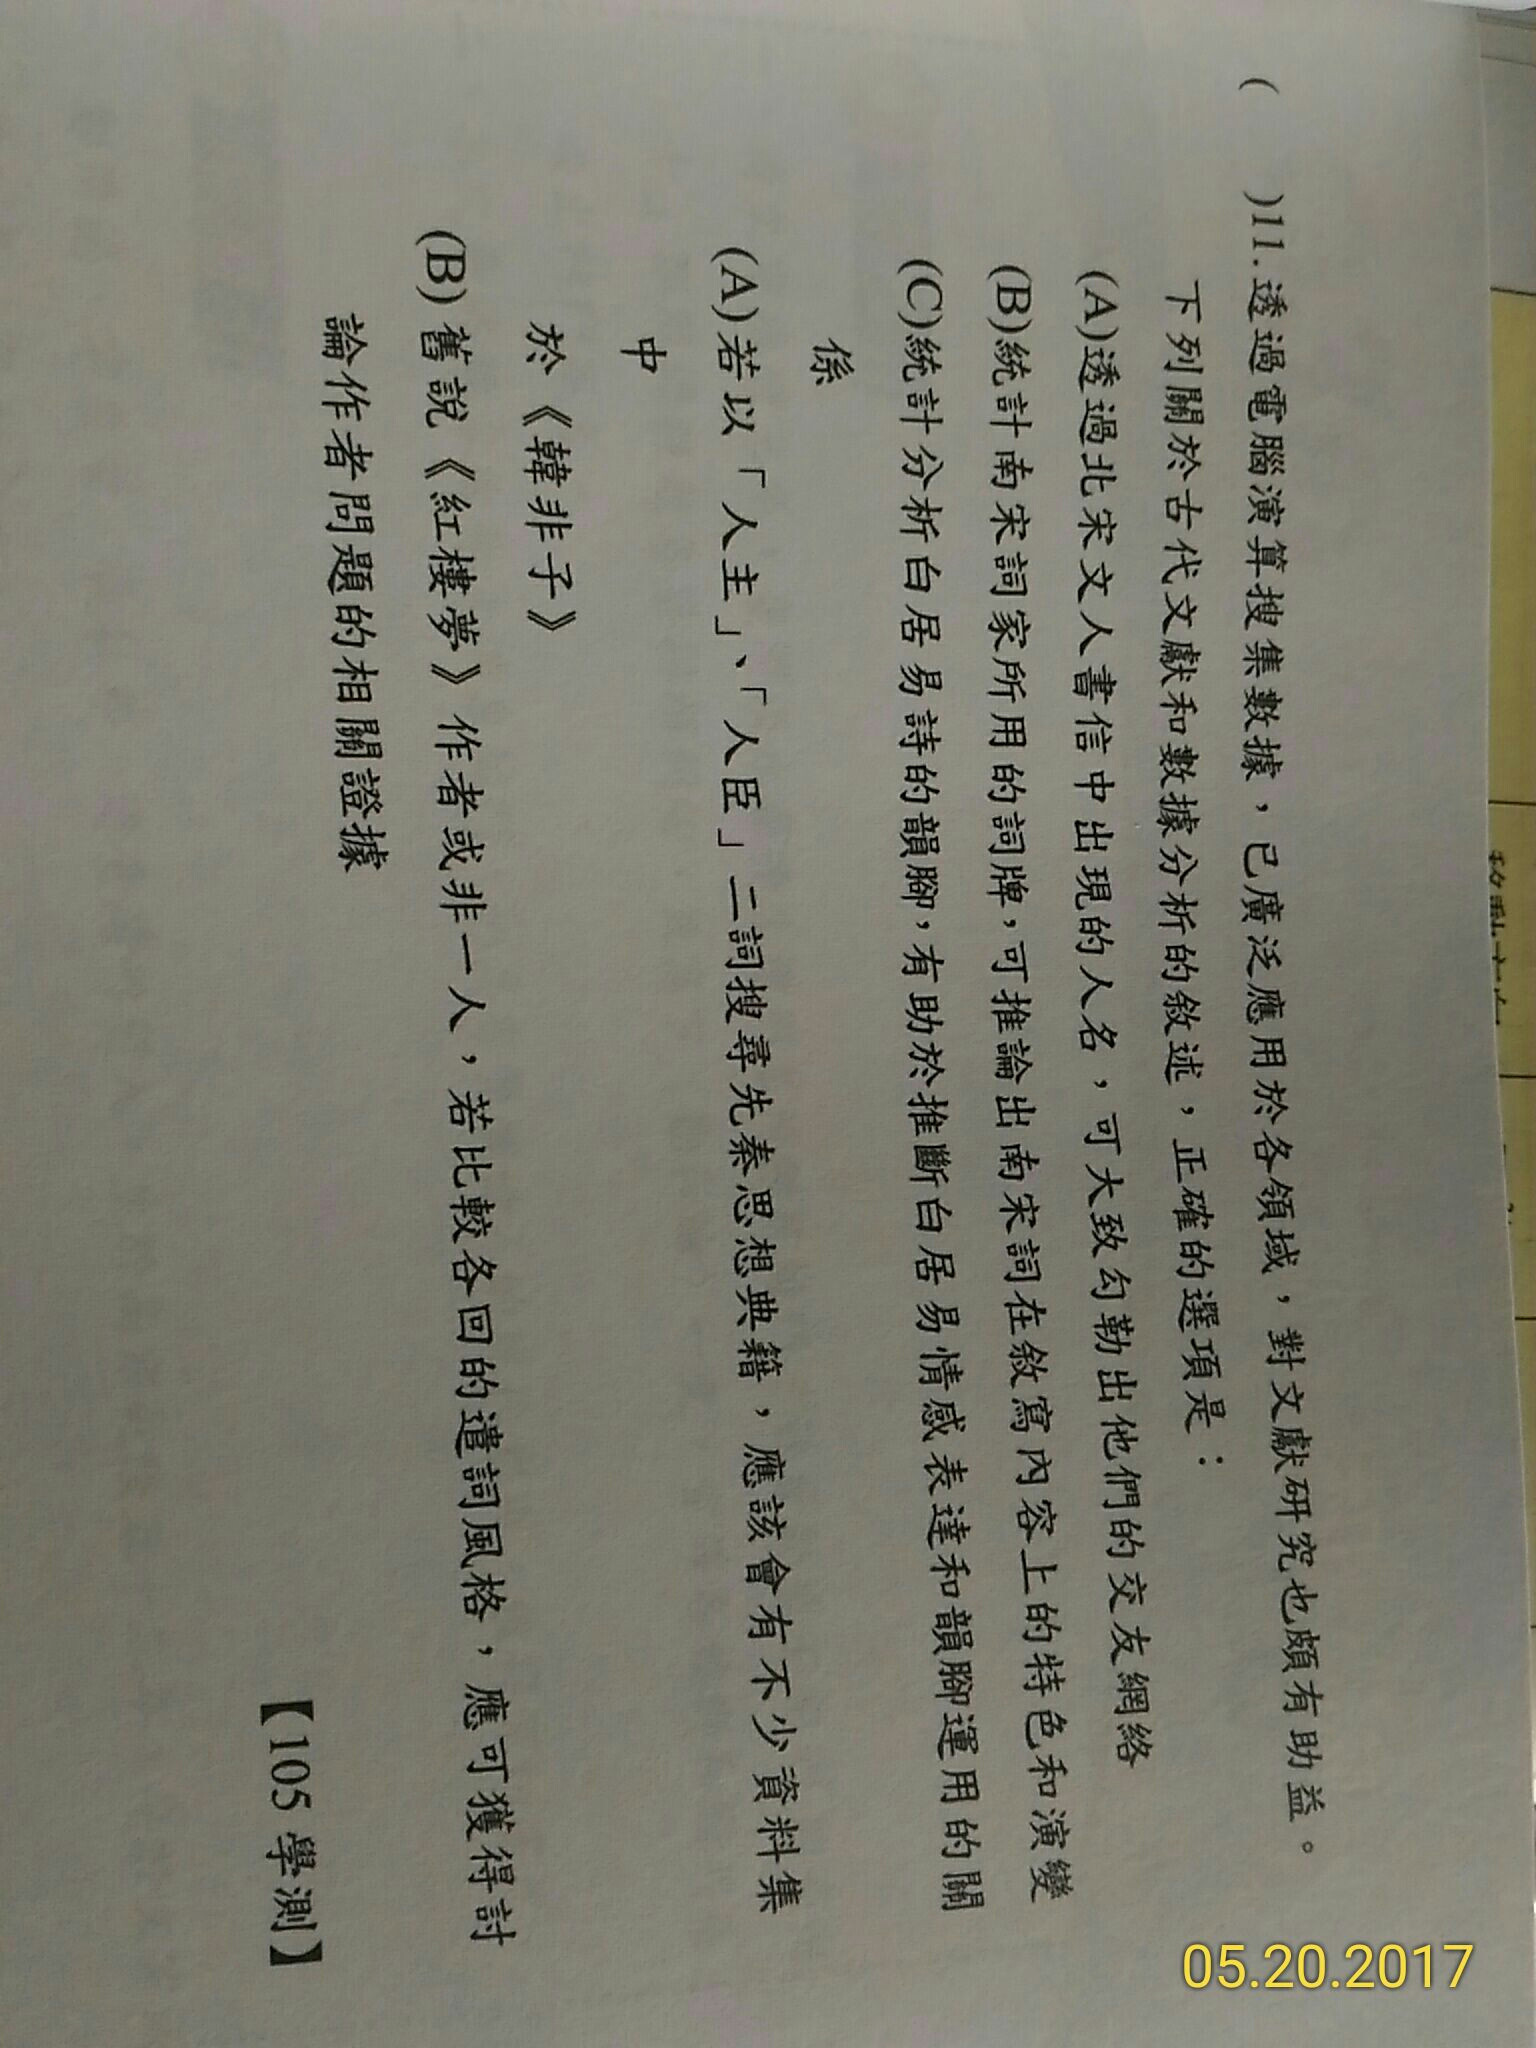 (　)11.透過電腦演算搜集數據，已廣泛應用於各領域，對文獻研究也頗有助益。
下列關於古代文獻和數據分析的敘述，正確的選項是：
(A)透過北宋文人書信中出現的人名，可大致勾勒出他們的交友網絡
(B)統計南宋詞家所用的詞牌，可推論出南宋詞在敘寫內容上的特色和演變
(C)統計分析白居易詩的韻腳，有助於推斷白居易情感表達和韻腳運用的關
係
(A)若以「人主」、「人臣」二詞搜尋先秦思想典籍，應該會有不少資料集
中
於《韓非子》
(B)舊說《紅樓夢》作者或非一人，若比較各回的遣詞風格，應可獲得討
論作者問題的相關證據
【105 學測】
05.20.2017